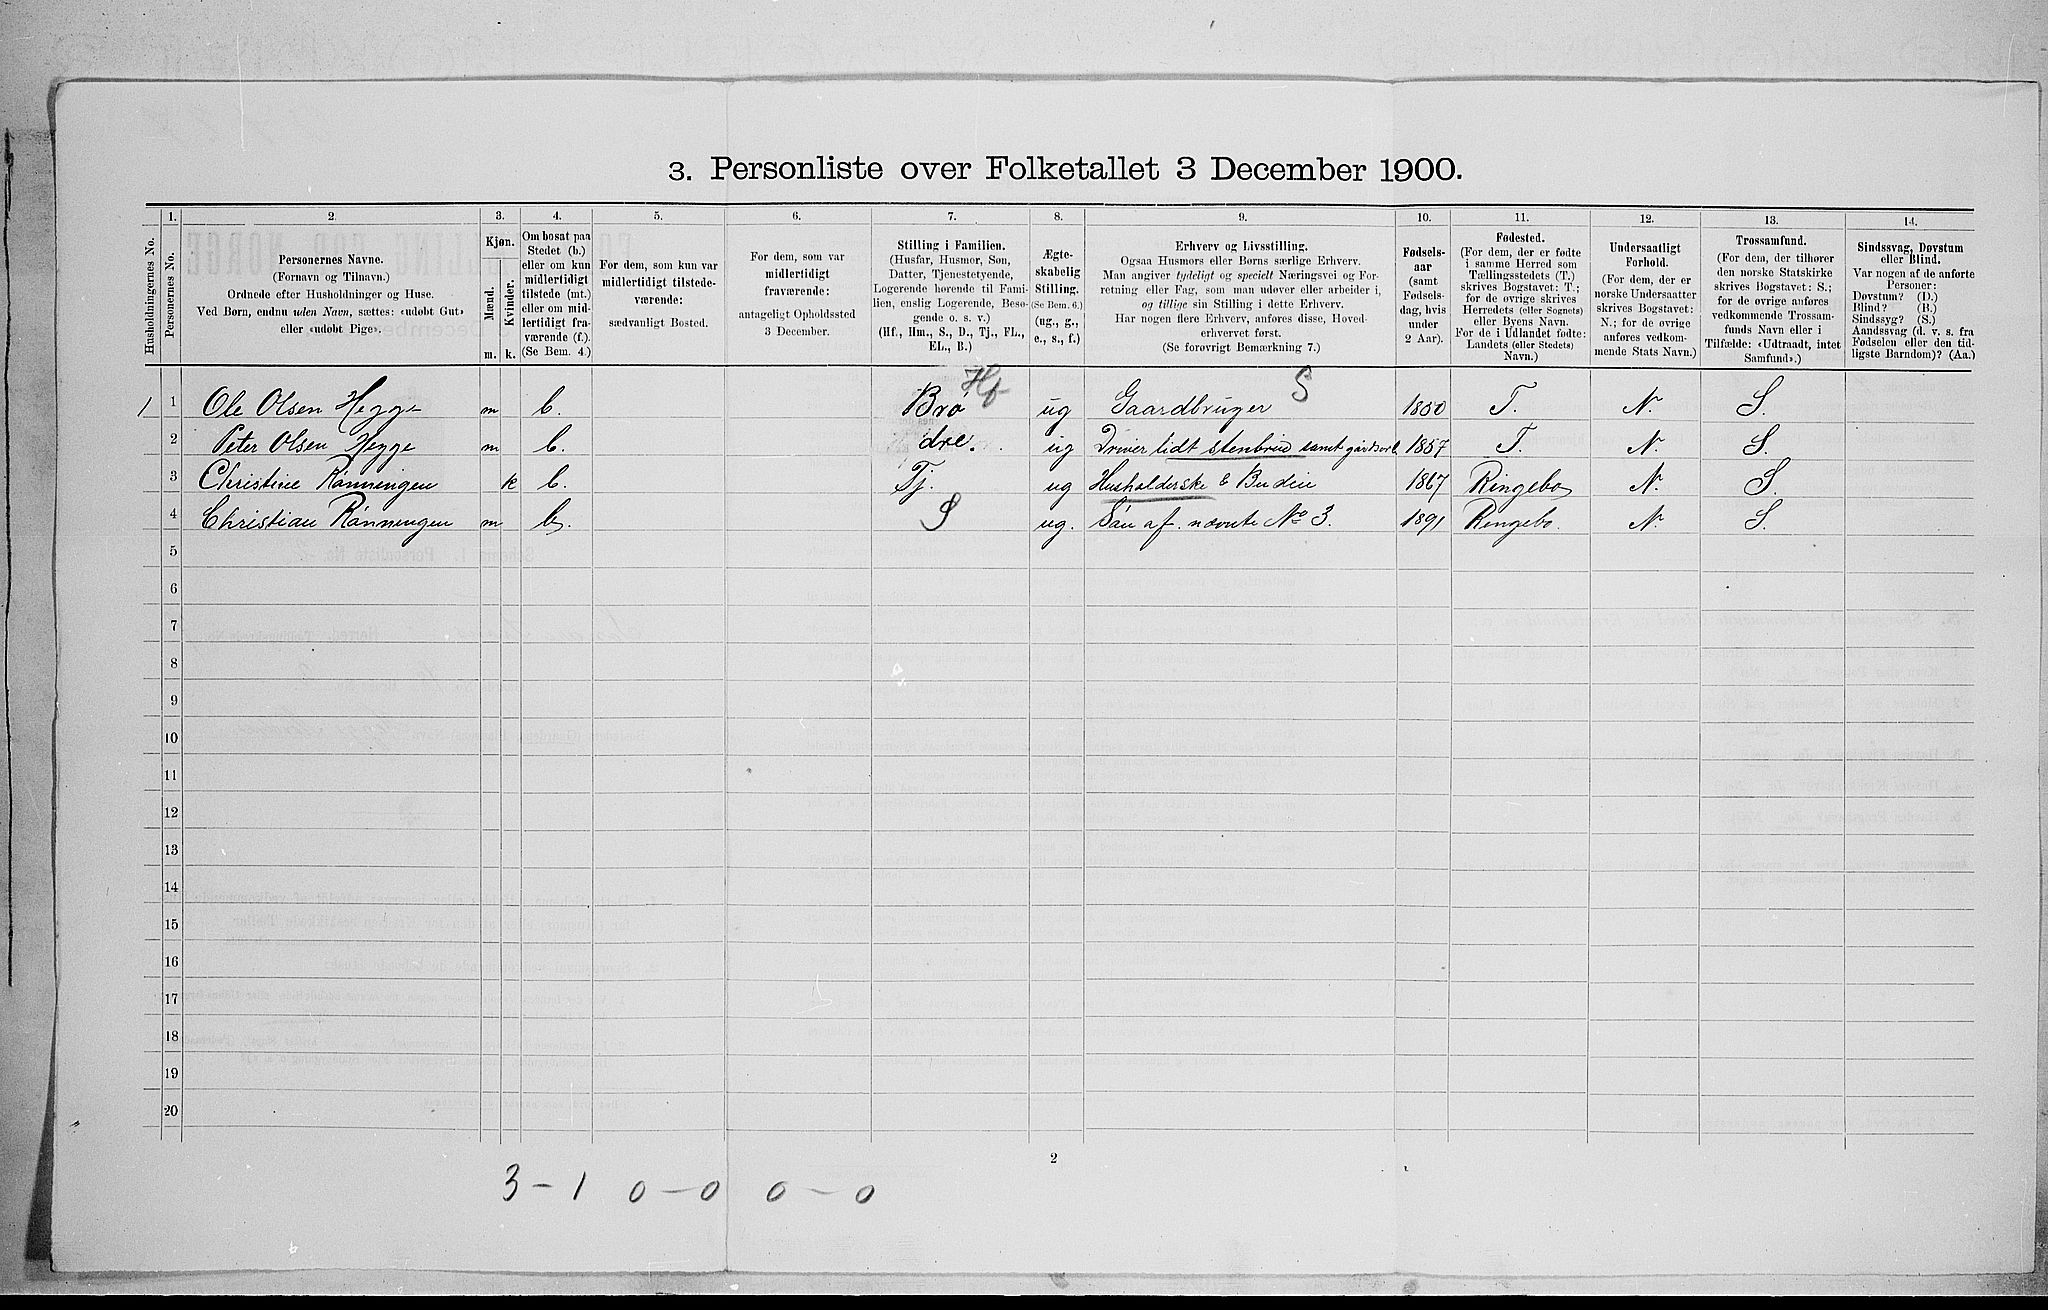 3. Personliste over Folketallet 3 December 1900.
Husholdningernes No.
1.
Personernes No.
2.
Personernes Navne.
(Fornavn og Tilnavn.)
Ordnede efter Husholdninger og Huse.
Ved Børn, endnu uden Navn, sættes: «udøbt Gut»
eller «udøbt Pige».
3.
Kjøn.
Mænd.
m.
Kvinder.
k.
4.
Om bosat paa
Stedet (b.)
eller om kun
midlertidigt
tilstede (mt.)
eller om mid-
lertidigt fra-
værende (f.).
(Se Bem. 4.)
5.
For dem, som kun var
midlertidigt tilstede-
værende:
sædvanligt Bosted.
6.
For dem, som var
midlertidigt
fraværende:
antageligt Opholdssted
3 December.
7.
Stilling i Familien.
(Husfar, Husmor, Søn,
Datter, Tjenestetyende,
Logerende hørende til Fami-
lien, enslig Logerende, Besø-
gende o. s. v.)
(Hf., Hm., S., D., Tj., FL.,
EL., B.)
8.
Ægte-
skabelig
Stilling.
(Se Bem. 6.)
(ug., g.,
e., s., f.)
9.
Erhverv og Livsstilling.
Ogsaa Husmors eller Børns særlige Erhverv.
Man angiver tydeligt og specielt Næringsvei og For-
retning eller Fag, som man udøver eller arbeider i,
og tillige sin Stilling i dette Erhverv.
Har nogen flere Erhverv, anføres disse, Hoved-
erhvervet først.
(Se forøvrigt Bemærkning 7.)
10.
Fødsels-
aar
(samt
Fødsels-
dag, hvis
under
2 Aar).
11.
Fødested.
(For dem, der er fødte
i samme Herred som
Tællingsstedets (T.)
skrives Bogstavet: T.;
for de øvrige skrives
Herredets (eller Sognets)
eller Byens Navn.
For de i Udlandet fødte:
Landets (eller Stedets)
Navn.)
12.
Undersaatligt
Forhold.
(For dem, der er
norske Undersaatter
skrives Bogstavet:
N.; for de øvrige
anføres vedkom-
mende Stats Navn.)
13.
Trossamfund.
(For dem, der tilhører
den norske Statskirke
skrives Bogstavet: S.;
for de øvrige anføres
vedkommende Trossam-
funds Navn eller i
Tilfælde: «Udtraadt, intet
Samfund».)
14.
Sindssvag, Døvstum
eller Blind.
Var nogen af de anførte
Personer:
Døvstum? (D.)
Blind? (B.)
Sindssyg? (S.)
Aandssvag (d. v. s. fra
Fødselen eller den tid-
ligste Barndom)? (Aa.)
1 1 Ole Olsen Hegge m b. Brø Hf ug Gaardbruger S 1850 T. N. S.
2 Peter Olsen Hegge m b. dre. ug Driver lidt stenbrud samt gårdsarb. 1857 T. N. S.
3 Christine Rønningen k b. Tj. ug Husholderske & Budeie 1867 Ringebo N. S.
4 Christian Rønningen m b. S ug. Søn af nævnte No 3. 1891 Ringebo. N. S.
5
6
7
8
9
10
11
12
13
14
15
16
17
18
19
20
2
3 - 1 0 - 0 0 - 0